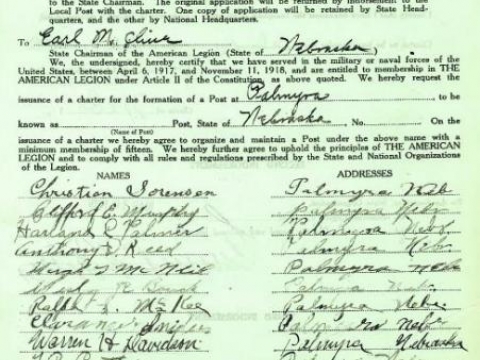 to the State Chairman. The original application will be returned by indorsement to the
Local Post with the charter. One copy of application will be retained by State Head-
quarters, and the other by National Headquarters.
To Earl M. Cline
State Chairman of the American Legion (State of Nebraska)
We, the undersigned, hereby certify that we have served in the military or naval forces of the
United States, between April 6, 1917, and November 11, 1918, and are entitled to membership in THE
AMERICAN LEGION under Article II of the Constitution, as above quoted. We hereby request the
issuance of a charter for the formation of a Post at Palmyra to be
known as Post, State of Nebraska, No. On the
(Name of Post)
issuance of a charter we hereby agree to organize and maintain a Post under the above name with a
minimum membership of fifteen. We further agree to uphold the principles of THE AMERICAN
LEGION and to comply with all rules and regulations prescribed by the State and National Organizations
of the Legion.
NAMES ADDRESSES
Christian Sorenson Palmyra Neb
E. Murphy Palmyra Nebr
Harland Palmer Palmyra Nebr.
Anthony E. Reed Palmyra Nebr
Hugh McNeil Palmyra Nebr
Palmyra Neb.
Ralph McKee Palmyra Nebr.
Clarance Snyder Palmyra Nebr
Warren H Davidson Palmyra Nebraska